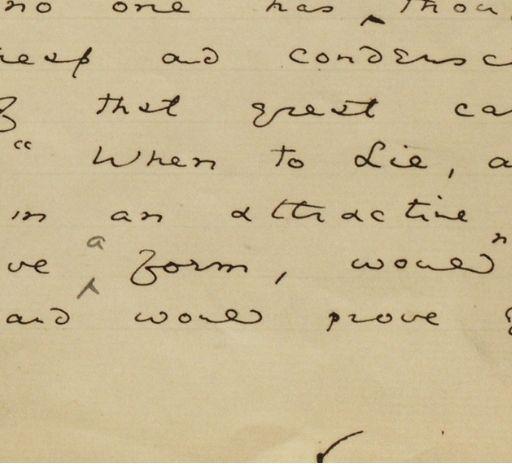 no one has thou
and condensc
that great ca
" When to Lie, a
in an attractive
ve a form, would
and would prove